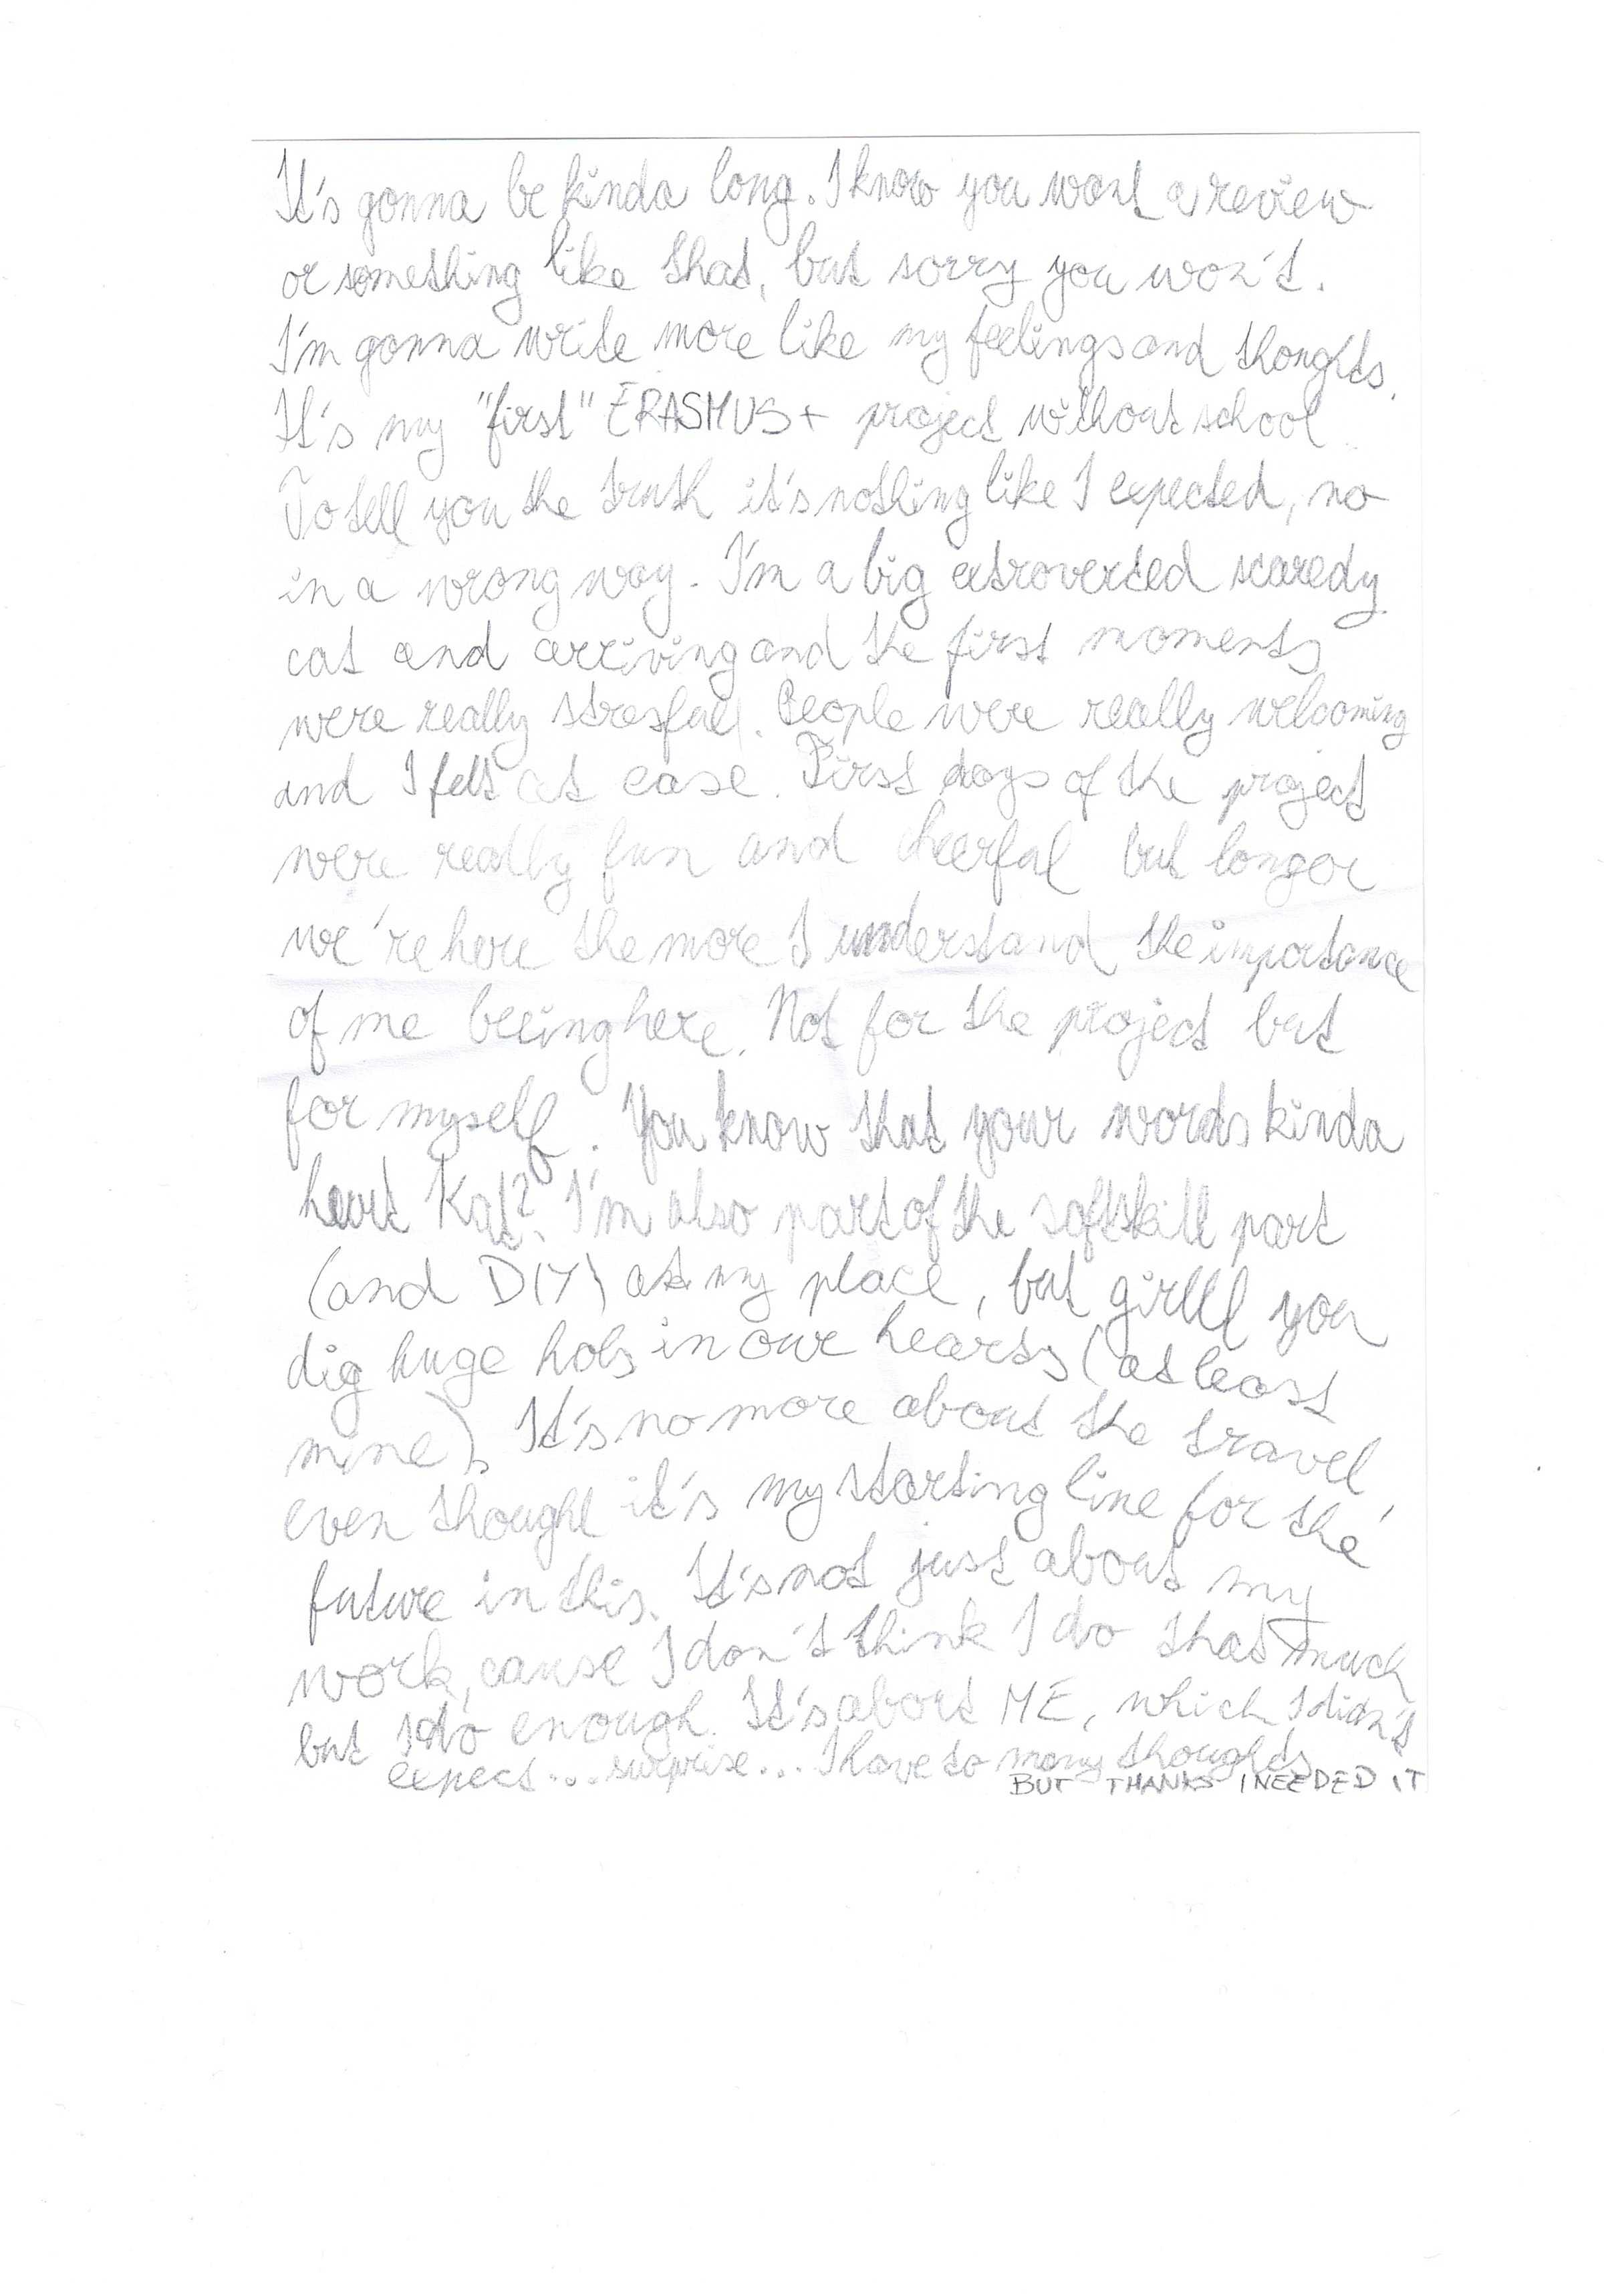 It's gonna be kinda long. I know you want a review
or something like that, but sorry you won't.
I'm gonna write more like my feelings and thoughts.
It's my "first" ERASMUS+ project without school
To tell you the truth it's nothing like I expected, no
in a wrong way. I'm a big extroverted scaredy
cat and arriving and the first moments
were really stresful. People were really welcoming
and I felt at ease. First days of the project
were really fun and cheerful but longer
we're here the more I understand the importance
of me beeing here. Not for the project but
for myself. You know that your words kinda
hurt Kat? I'm also part of the softskill part
(and DIY) at my place, but girlll you
dig huge hols in our hearts (at least
mine). It's no more about the travel,
even thought it's my starting line for the
future in this. It's not just about my
work, cause I don't think I do that much
but I do enough. It's about ME, which I didn't
expect... surprise... I have so many thoughts
BUT THANKS I NEEDED IT